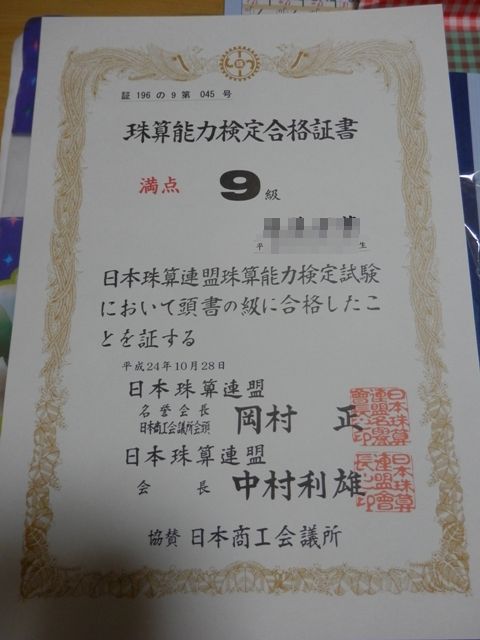 証 196 の 9 第 045 号
珠算能力検定合格証書
満点 9 級
平 生
日本珠算連盟珠算能力検定試験
において頭書の級に合格したこ
とを証する
平成24年10月28日
日本珠算連盟
名誉会長
日本商工会議所会頭
岡村 正
日本珠算連盟
会長 中村利雄
協賛 日本商工会議所